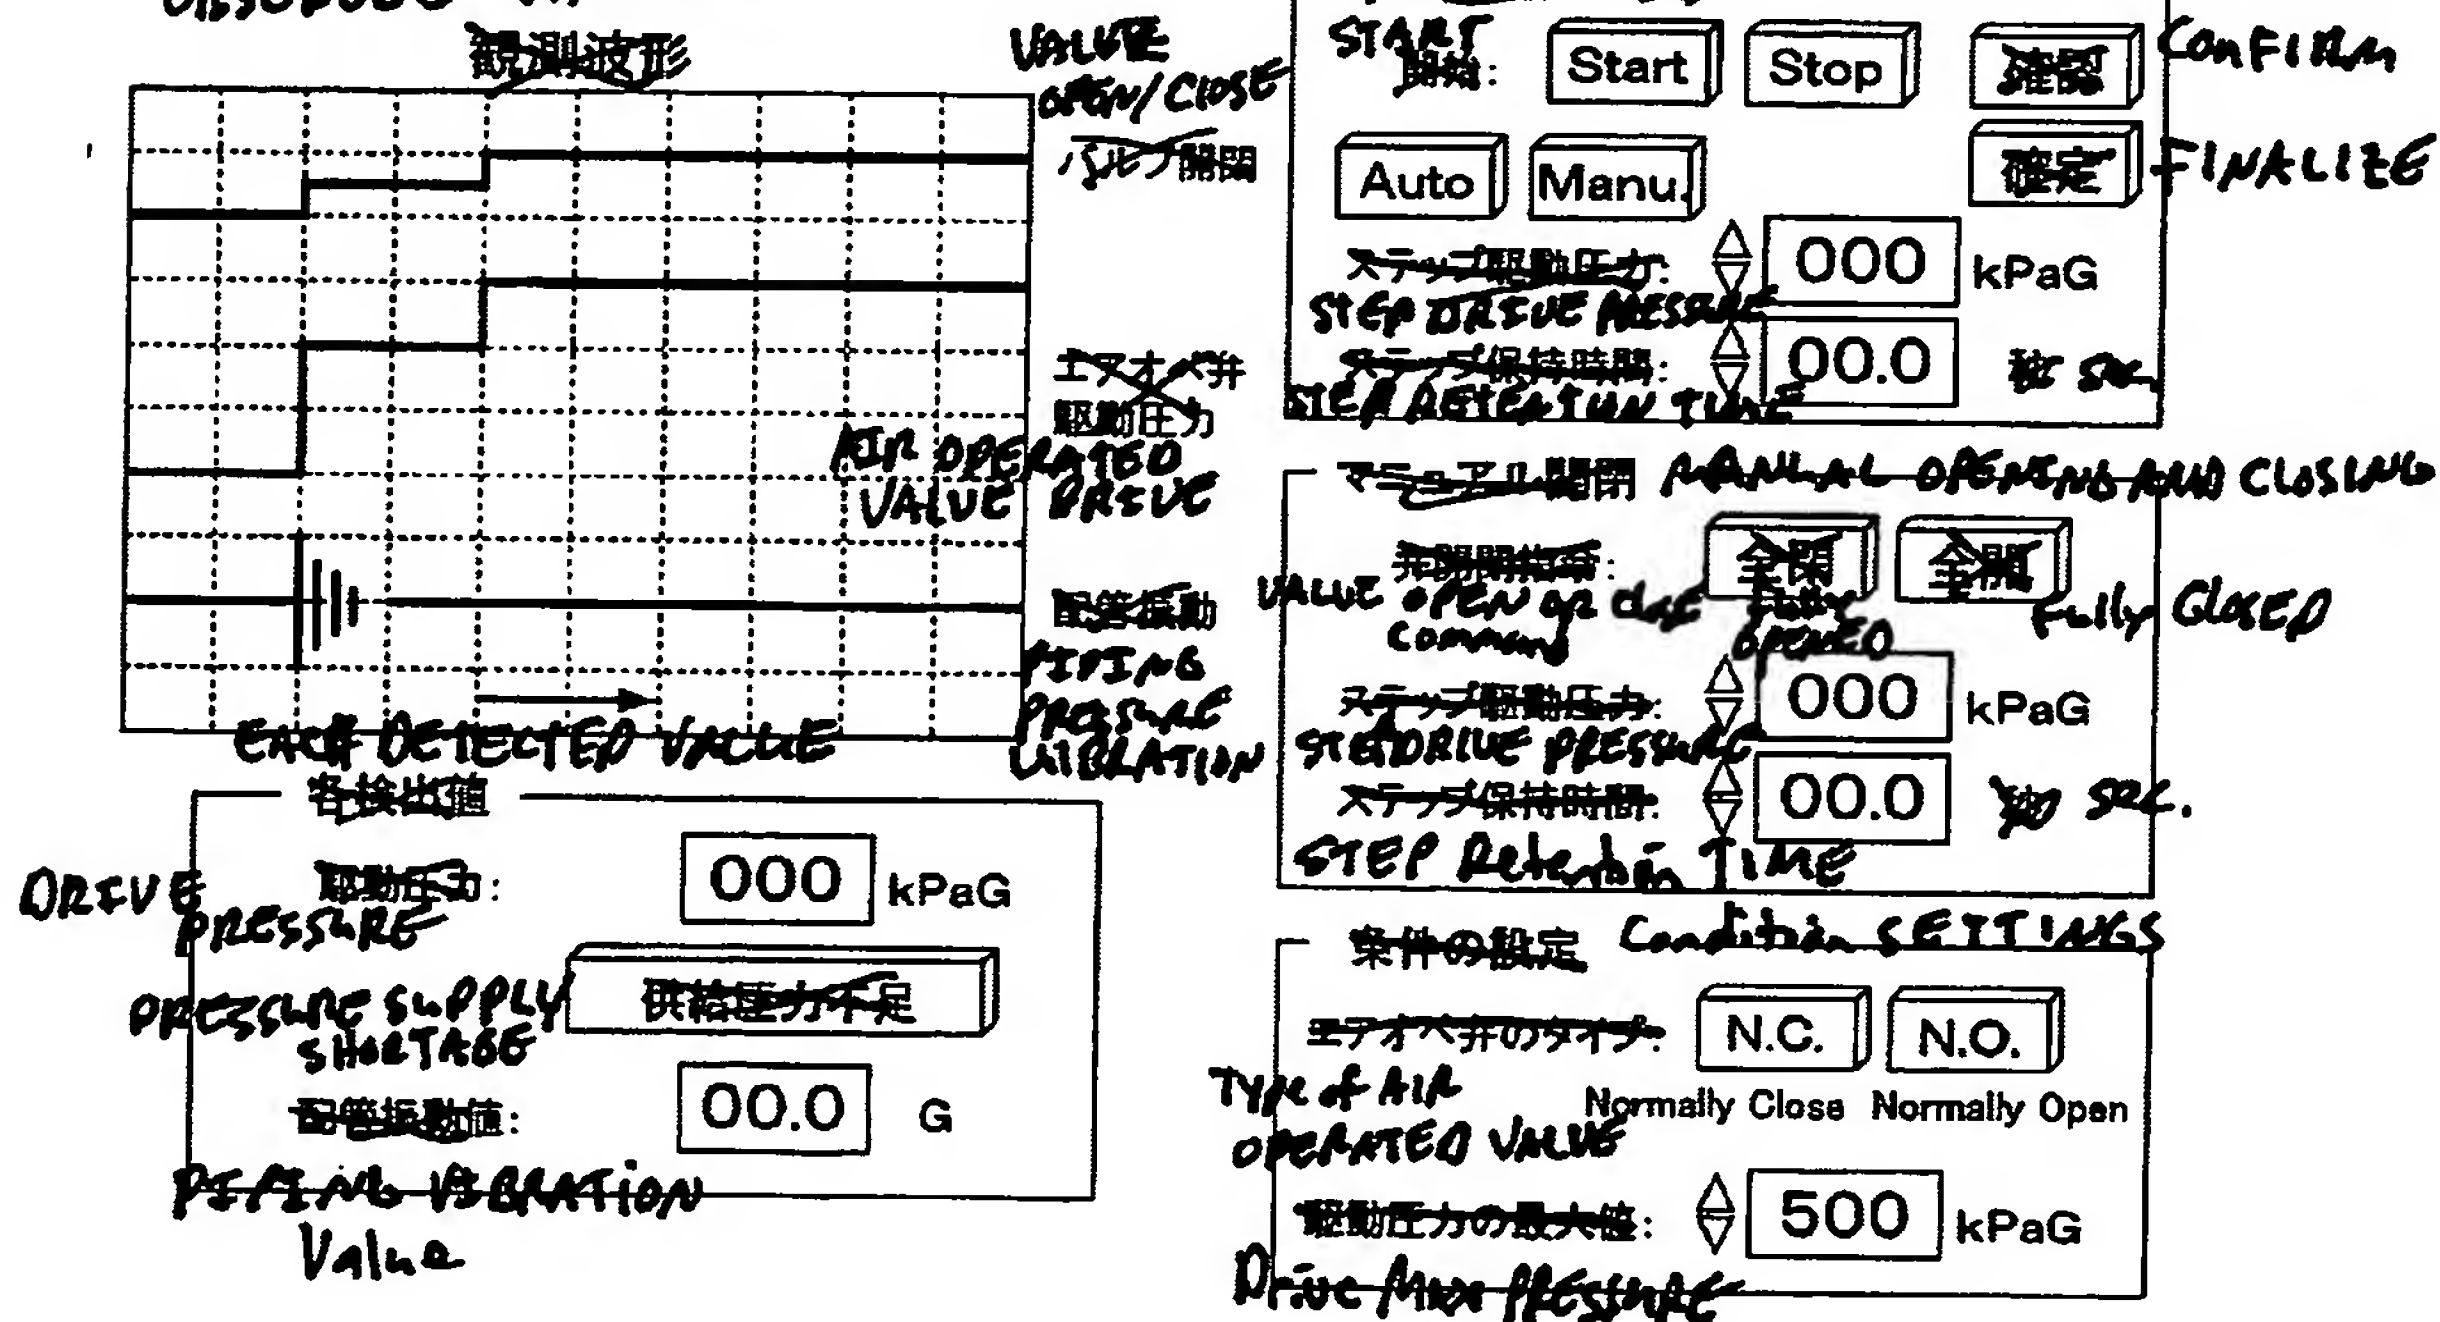 観測波形
VALVE
OPEN/CLOSE
バルブ開閉
エアオペ弁
駆動圧力
AIR OPERATED
VALVE DRIVE
配管振動
PIPING
PRESSURE
VIBRATION
EACH DETECTED VALUE
各検出値
駆動圧力: 000 kPaG
DRIVE
PRESSURE
供給圧力不足
PRESSURE SUPPLY
SHORTAGE
配管振動値: 00.0 G
PIPING VIBRATION
Value
START
開始: Start Stop 確認 CONFIRM
Auto Manu. 確定 FINALIZE
ステップ駆動圧力: 000 kPaG
STEP DRIVE PRESSURE
ステップ保持時間: 00.0 秒
STEP RETENTION TIME
マニュアル開閉 MANUAL OPENING AND CLOSING
弁開閉指令: 全開
VALVE OPEN OR close
Command
FULLY
OPENED
Fully CLOSED
ステップ駆動圧力: 000 kPaG
STEP DRIVE PRESSURE
ステップ保持時間: 00.0 秒 SEC.
STEP Retention TIME
条件の設定 Condition SETTINGS
エアオペ弁のタイプ: N.C. N.O.
Normally Close Normally Open
Type of AIR
OPERATED VALVE
駆動圧力の最大値: 500 kPaG
Drive Max PRESSURE